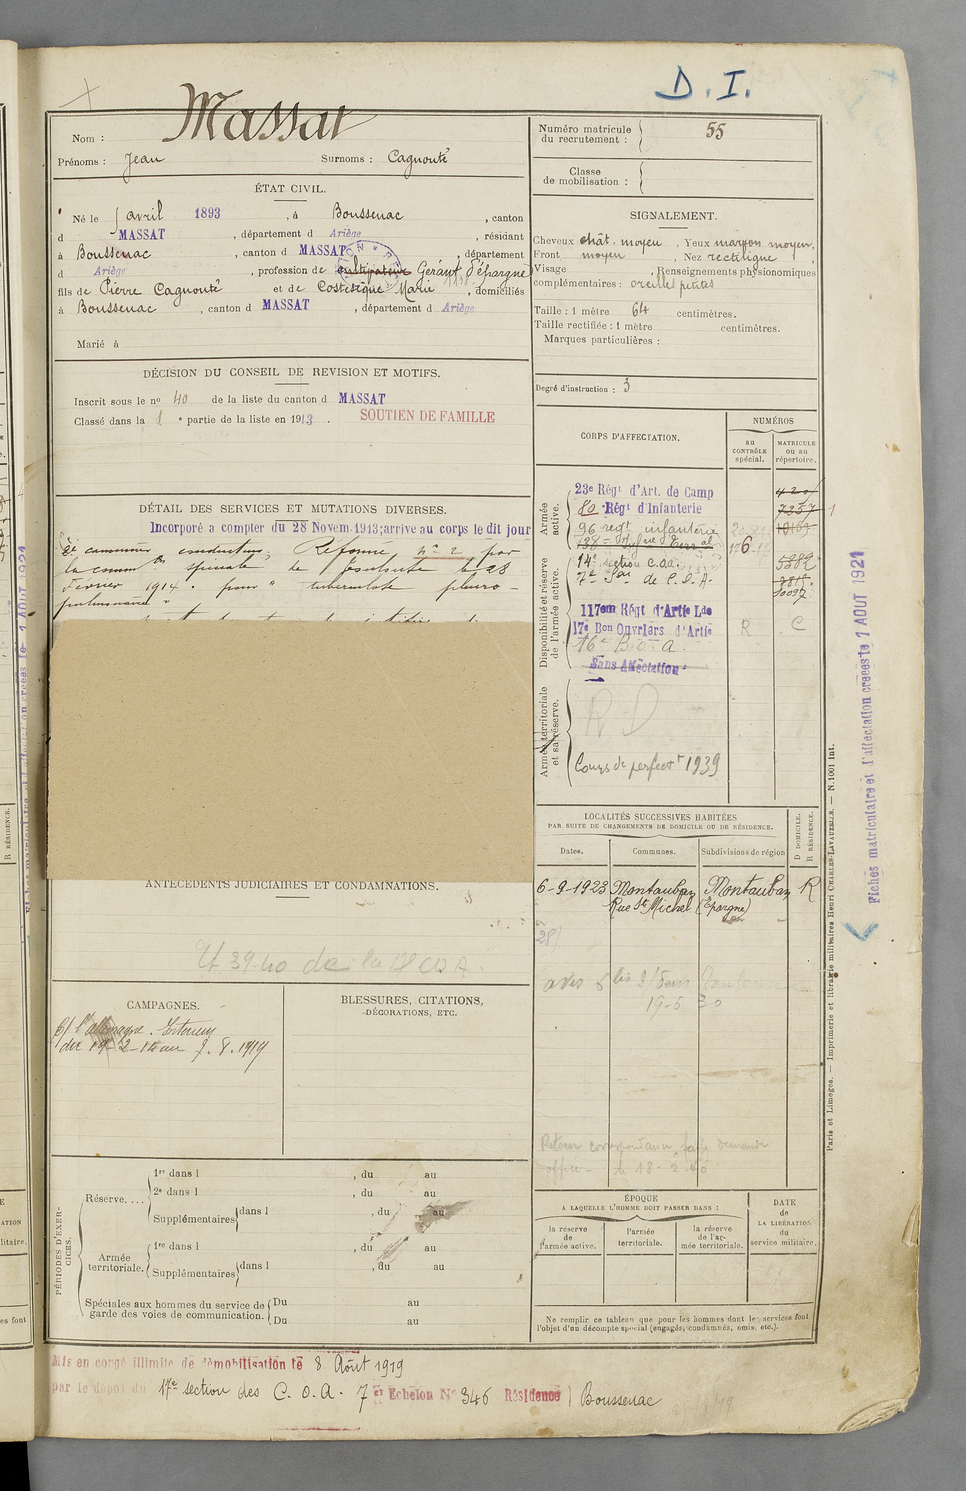 D. I.
Nom : Massat
Prénoms : Jean Surnoms : Cagnoute
ÉTAT CIVIL.
Né le 5 avril 1893, à Boussenac, canton
d MASSAT, département d Ariège, résidant
à Boussenac, canton d MASSAT, département
d Ariège, profession de cultivateur Gérant d'épargne
fils de Pierre Cagnoute et de Costesèque Marie, domiciliés
à Boussenac, canton d MASSAT, département d Ariège
Marié à
DÉCISION DU CONSEIL DE REVISION ET MOTIFS.
Inscrit sous le no 40 de la liste du canton d MASSAT
Classé dans la 1 e partie de la liste en 1913.
SOUTIEN DE FAMILLE
DÉTAIL DES SERVICES ET MUTATIONS DIVERSES.
Incorporé a compter du 28 Novem. 1913; arrive au corps le dit jour
2e cannonier conducteur. Reformé no 2 par
la comm on speciale de Toulouse le 28
Fevrier 1914 pour " tuberculose pleuro-
pulmonaire "
ANTÉCÉDENTS JUDICIAIRES ET CONDAMNATIONS.
39-40 de la
CAMPAGNES.
C/ l'allemagne. Interieur
du au 8. 8. 1919
BLESSURES, CITATIONS,
DÉCORATIONS, ETC.
PÉRIODES D'EXERCICES.
Réserve....
1re dans l , du au
2e dans l , du au
Supplémentaires dans l , du au
Armée territoriale.
1re dans l , du au
Supplémentaires dans l , du au
Spéciales aux hommes du service de garde des voies de communication.
Du au
Du au
Mis en congé illimité de démobilisation le 8 Août 1919
par le dépot du 17e section des C. O. A. 7 er Echelon No 346 Résidence Boussenac
Numéro matricule du recrutement : 55
Classe de mobilisation :
SIGNALEMENT.
Cheveux chât. moyen. Yeux marron moyen,
Front moyen, Nez rectiligne,
Visage , Renseignements physionomiques
complémentaires : oreilles petites
Taille : 1 mètre 64 centimètres.
Taille rectifiée : 1 mètre centimètres.
Marques particulières :
Degré d'instruction : 3
CORPS D'AFFECTATION.
NUMÉROS
au CONTRÔLE spécial.
MATRICULE ou au répertoire.
Armée active.
23e Régt d'Art. de Camp
80 Régt d'Infanterie 7257
96 regt infanterie
138
Disponibilité et réserve de l'armée active.
14e section C.O.A. 5382
7e Son de C.O.A.
10097
117em Régt d'Artie Lde
17e Bon Ouvriers d'Artie R C
16e B. O. A.
Sans Affectation
Armée territoriale et sa réserve.
R D
Cours de perfectt 1939
LOCALITÉS SUCCESSIVES HABITÉES
PAR SUITE DE CHANGEMENTS DE DOMICILE OU DE RÉSIDENCE.
Dates. Communes. Subdivisions de région
D DOMICILE. R RÉSIDENCE.
6-9-1923 Montauban Montauban R
Rue St Michel (Epargne)
19-5 30
Retour correspondance faire demande
le 18-2-40
ÉPOQUE
A LAQUELLE L'HOMME DOIT PASSER DANS :
la réserve de l'armée active.
l'armée territoriale.
la réserve de l'armée territoriale.
DATE de LA LIBÉRATION du service militaire.
Ne remplir ce tableau que pour les hommes dont les services font
l'objet d'un décompte spécial (engagés, condamnés, omis, etc.).
Paris et Limoges. — Imprimerie et librairie militaires Henri CHARLES-LAVAUZELLE. — N. 1001 int.
Fiches matriculaire et d'affectation creees le 1 AOUT 1921